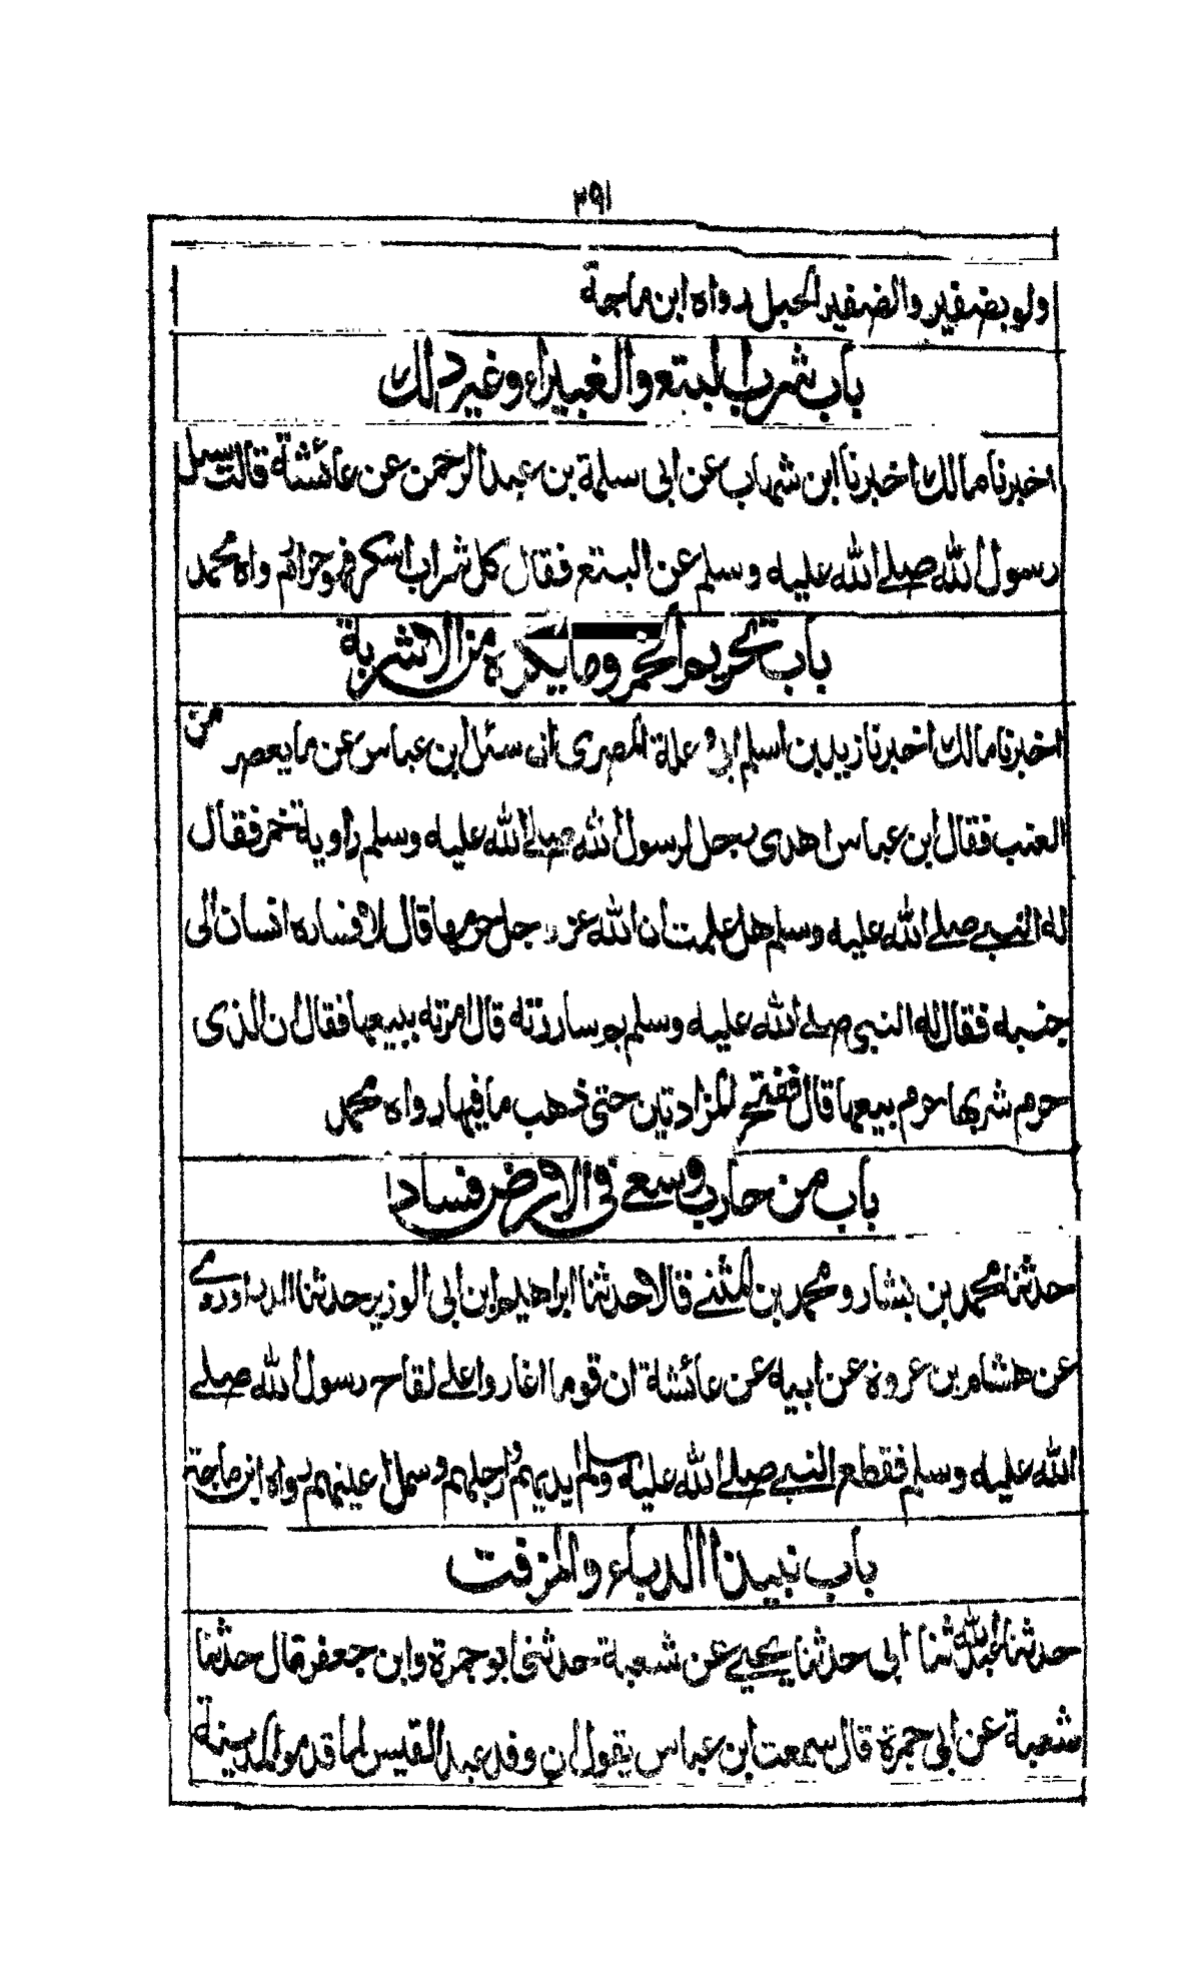 ٣٩١
ولو بضفير والضفير الحبل رواه ابن ماجة
باب شرب البتع والغبيراء وغير ذلك
اخبرنا مالك اخبرنا ابن شهاب عن ابى سلمة بن عبد الرحمن عن عائشة قالت سئل
رسول الله صلے الله عليه وسلم عن البتع فقال كل شراب اسكر فهو حرام رواه محمد
باب تحريم الخمر وما يكره من الاشربة
اخبرنا مالك اخبرنا زيد بن اسلم عن وعلة المصرى انه سئل ابن عباس عن ما يعصر من
العنب فقال ابن عباس اهدى رجل لرسول الله صلے الله عليه وسلم راوية خمر فقال
له النبے صلے الله عليه وسلم هل علمت ان الله عز وجل حرمها قال لا فساره انسان الى
جنبه فقال له النبى صلے الله عليه وسلم بم ساررته قال امرته ببيعها فقال ان الذى
حرم شربها حرم بيعها قال ففتح المزادتين حتى ذهب ما فيها رواه محمد
باب من حارب وسعے فى الارض فسادا
حدثنا محمد بن بشار ومحمد بن المثنے قالا حدثنا ابراهيم ابن ابى الوزير حدثنا الدراوردے
عن هشام بن عروة عن ابيه عن عائشة ان قوما اغاروا علے لقاح رسول الله صلے
الله عليه وسلم فقطع النبے صلے الله عليه وسلم ايديهم وارجلهم وسمل اعينهم رواه ابن ماجة
باب نبيذ الدباء والمزفت
حدثنا عبد الله ثنا ابى حدثنا يحيے عن شعبة حدثنى ابو جمرة وابن جعفر قال حدثنا
شعبة عن ابى جمرة قال سمعت ابن عباس يقول ان وفد عبد القيس لما قدموا المدينة